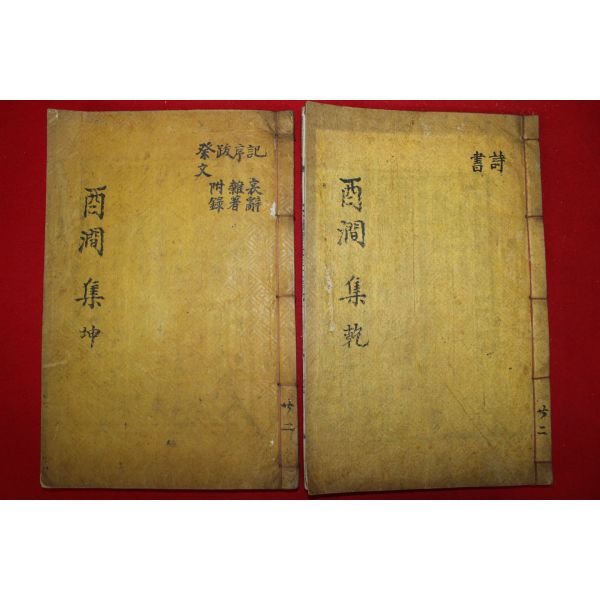 詩
書
酉澗集乾
共二
記 哀辭
序 雜著
跋 附錄
祭文
酉澗集坤
共二